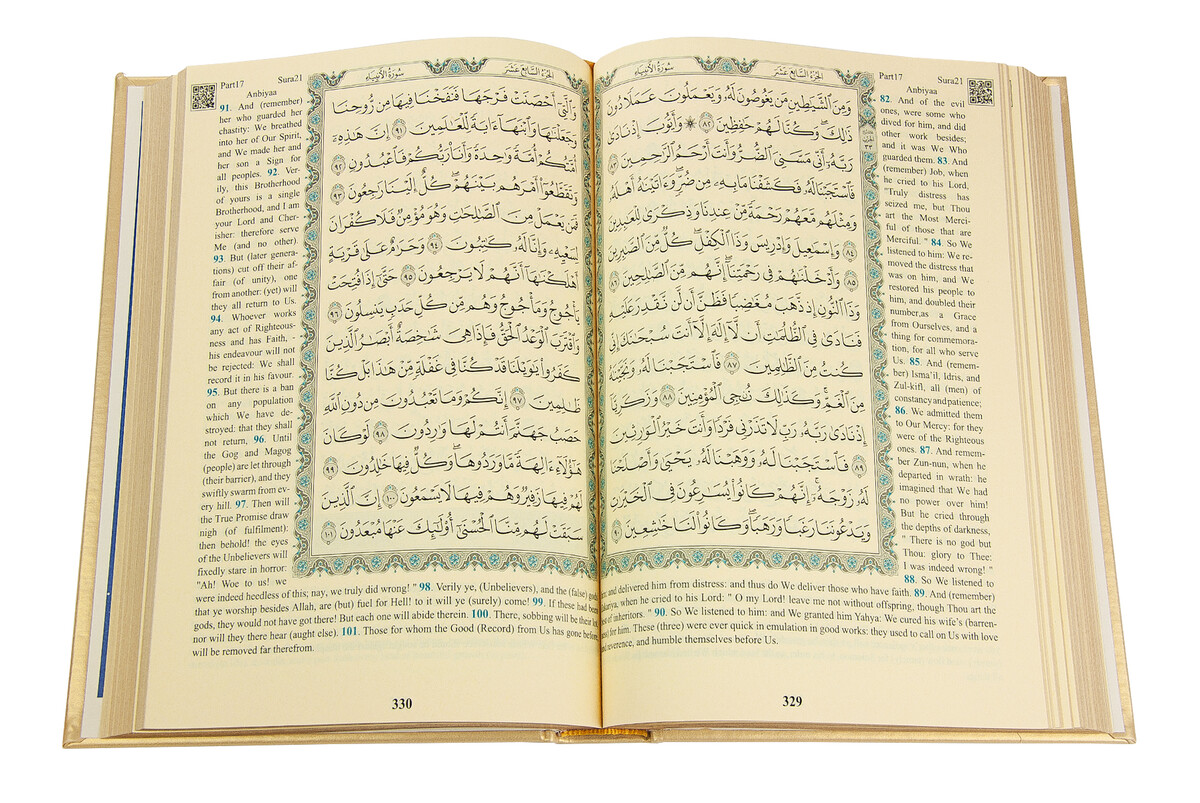 Part17 Sura21
Anbiyaa
الجُزءُ السَّابِعَ عَشَرَ
سُورَةُ الأَنبِيَاءِ
وَمِنَ ٱلشَّيَٰطِينِ مَن يَغُوصُونَ لَهُۥ وَيَعْمَلُونَ عَمَلًا دُونَ
ذَٰلِكَ ۖ وَكُنَّا لَهُمْ حَٰفِظِينَ ٨٢ ۞ وَأَيُّوبَ إِذْ نَادَىٰ
رَبَّهُۥٓ أَنِّى مَسَّنِىَ ٱلضُّرُّ وَأَنتَ أَرْحَمُ ٱلرَّٰحِمِينَ ٨٣
فَٱسْتَجَبْنَا لَهُۥ فَكَشَفْنَا مَا بِهِۦ مِن ضُرٍّ ۖ وَءَاتَيْنَٰهُ أَهْلَهُۥ
وَمِثْلَهُم مَّعَهُمْ رَحْمَةً مِّنْ عِندِنَا وَذِكْرَىٰ لِلْعَٰبِدِينَ
٨٤ وَإِسْمَٰعِيلَ وَإِدْرِيسَ وَذَا ٱلْكِفْلِ ۖ كُلٌّ مِّنَ ٱلصَّٰبِرِينَ
٨٥ وَأَدْخَلْنَٰهُمْ فِى رَحْمَتِنَآ ۖ إِنَّهُم مِّنَ ٱلصَّٰلِحِينَ ٨٦
وَذَا ٱلنُّونِ إِذ ذَّهَبَ مُغَٰضِبًا فَظَنَّ أَن لَّن نَّقْدِرَ عَلَيْهِ
فَنَادَىٰ فِى ٱلظُّلُمَٰتِ أَن لَّآ إِلَٰهَ إِلَّآ أَنتَ سُبْحَٰنَكَ إِنِّى
كُنتُ مِنَ ٱلظَّٰلِمِينَ ٨٧ فَٱسْتَجَبْنَا لَهُۥ وَنَجَّيْنَٰهُ
مِنَ ٱلْغَمِّ ۚ وَكَذَٰلِكَ نُۨجِى ٱلْمُؤْمِنِينَ ٨٨ وَزَكَرِيَّآ
إِذْ نَادَىٰ رَبَّهُۥ رَبِّ لَا تَذَرْنِى فَرْدًا وَأَنتَ خَيْرُ ٱلْوَٰرِثِينَ
٨٩ فَٱسْتَجَبْنَا لَهُۥ وَوَهَبْنَا لَهُۥ يَحْيَىٰ وَأَصْلَحْنَا
لَهُۥ زَوْجَهُۥٓ ۚ إِنَّهُمْ كَانُوا۟ يُسَٰرِعُونَ فِى ٱلْخَيْرَٰتِ
وَيَدْعُونَنَا رَغَبًا وَرَهَبًا ۖ وَكَانُوا۟ لَنَا خَٰشِعِينَ ٩٠
82. And of the evil
ones, were some who
dived for him, and did
other work besides;
and it was We Who
guarded them. 83. And
(remember) Job, when
he cried to his Lord,
"Truly distress has
seized me, but Thou
art the Most Merci-
ful of those that are
Merciful. " 84. So We
listened to him: We re-
moved the distress that
was on him, and We
restored his people to
him, and doubled their
number,as a Grace
from Ourselves, and a
thing for commemora-
tion, for all who serve
Us. 85. And (remem-
ber) Isma'il, Idris, and
Zul-kifl, all (men) of
constancy and patience;
86. We admitted them
to Our Mercy: for they
were of the Righteous
ones. 87. And remem-
ber Zun-nun, when he
departed in wrath: he
imagined that We had
no power over him!
But he cried through
the depths of darkness,
" There is no god but
Thou: glory to Thee:
I was indeed wrong! "
88. So We listened to
and delivered him from distress: and thus do We deliver those who have faith. 89. And (remember)
when he cried to his Lord: " O my Lord! leave me not without offspring, though Thou art the
of inheritors. " 90. So We listened to him: and We granted him Yahya: We cured his wife's (barren-
for him. These (three) were ever quick in emulation in good works: they used to call on Us with love
reverence, and humble themselves before Us.
329
Part17 Sura21
Anbiyaa
الجُزءُ السَّابِعَ عَشَرَ
سُورَةُ الأَنبِيَاءِ
وَٱلَّتِىٓ أَحْصَنَتْ فَرْجَهَا فَنَفَخْنَا فِيهَا مِن رُّوحِنَا
وَجَعَلْنَٰهَا وَٱبْنَهَآ ءَايَةً لِّلْعَٰلَمِينَ ٩١ إِنَّ هَٰذِهِۦٓ
أُمَّتُكُمْ أُمَّةً وَٰحِدَةً وَأَنَا۠ رَبُّكُمْ فَٱعْبُدُونِ ٩٢
وَتَقَطَّعُوٓا۟ أَمْرَهُم بَيْنَهُمْ ۖ كُلٌّ إِلَيْنَا رَٰجِعُونَ ٩٣
فَمَن يَعْمَلْ مِنَ ٱلصَّٰلِحَٰتِ وَهُوَ مُؤْمِنٌ فَلَا كُفْرَانَ
لِسَعْيِهِۦ وَإِنَّا لَهُۥ كَٰتِبُونَ ٩٤ وَحَرَٰمٌ عَلَىٰ قَرْيَةٍ
أَهْلَكْنَٰهَآ أَنَّهُمْ لَا يَرْجِعُونَ ٩٥ حَتَّىٰٓ إِذَا فُتِحَتْ
يَأْجُوجُ وَمَأْجُوجُ وَهُم مِّن كُلِّ حَدَبٍ يَنسِلُونَ ٩٦
وَٱقْتَرَبَ ٱلْوَعْدُ ٱلْحَقُّ فَإِذَا هِىَ شَٰخِصَةٌ أَبْصَٰرُ ٱلَّذِينَ
كَفَرُوا۟ يَٰوَيْلَنَا قَدْ كُنَّا فِى غَفْلَةٍ مِّنْ هَٰذَا بَلْ كُنَّا
ظَٰلِمِينَ ٩٧ إِنَّكُمْ وَمَا تَعْبُدُونَ مِن دُونِ ٱللَّهِ
حَصَبُ جَهَنَّمَ أَنتُمْ لَهَا وَٰرِدُونَ ٩٨ لَوْ كَانَ
هَٰٓؤُلَآءِ ءَالِهَةً مَّا وَرَدُوهَا ۖ وَكُلٌّ فِيهَا خَٰلِدُونَ ٩٩
لَهُمْ فِيهَا زَفِيرٌ وَهُمْ فِيهَا لَا يَسْمَعُونَ ١٠٠ إِنَّ ٱلَّذِينَ
سَبَقَتْ لَهُم مِّنَّا ٱلْحُسْنَىٰٓ أُو۟لَٰٓئِكَ عَنْهَا مُبْعَدُونَ ١٠١
91. And (remember)
her who guarded her
chastity: We breathed
into her of Our Spirit,
and We made her and
her son a Sign for
all peoples. 92. Ver-
ily, this Brotherhood
of yours is a single
Brotherhood, and I am
your Lord and Cher-
isher: therefore serve
Me (and no other).
93. But (later genera-
tions) cut off their af-
fair (of unity), one
from another: (yet) will
they all return to Us.
94. Whoever works
any act of Righteous-
ness and has Faith, -
his endeavour will not
be rejected: We shall
record it in his favour.
95. But there is a ban
on any population
which We have de-
stroyed: that they shall
not return, 96. Until
the Gog and Magog
(people) are let through
(their barrier), and they
swiftly swarm from ev-
ery hill. 97. Then will
the True Promise draw
nigh (of fulfilment):
then behold! the eyes
of the Unbelievers will
fixedly stare in horror:
"Ah! Woe to us! we
were indeed heedless of this; nay, we truly did wrong! " 98. Verily ye, (Unbelievers), and the (false) gods
that ye worship besides Allah, are (but) fuel for Hell! to it will ye (surely) come! 99. If these had been
gods, they would not have got there! But each one will abide therein. 100. There, sobbing will be their
nor will they there hear (aught else). 101. Those for whom the Good (Record) from Us has gone before,
will be removed far therefrom.
330